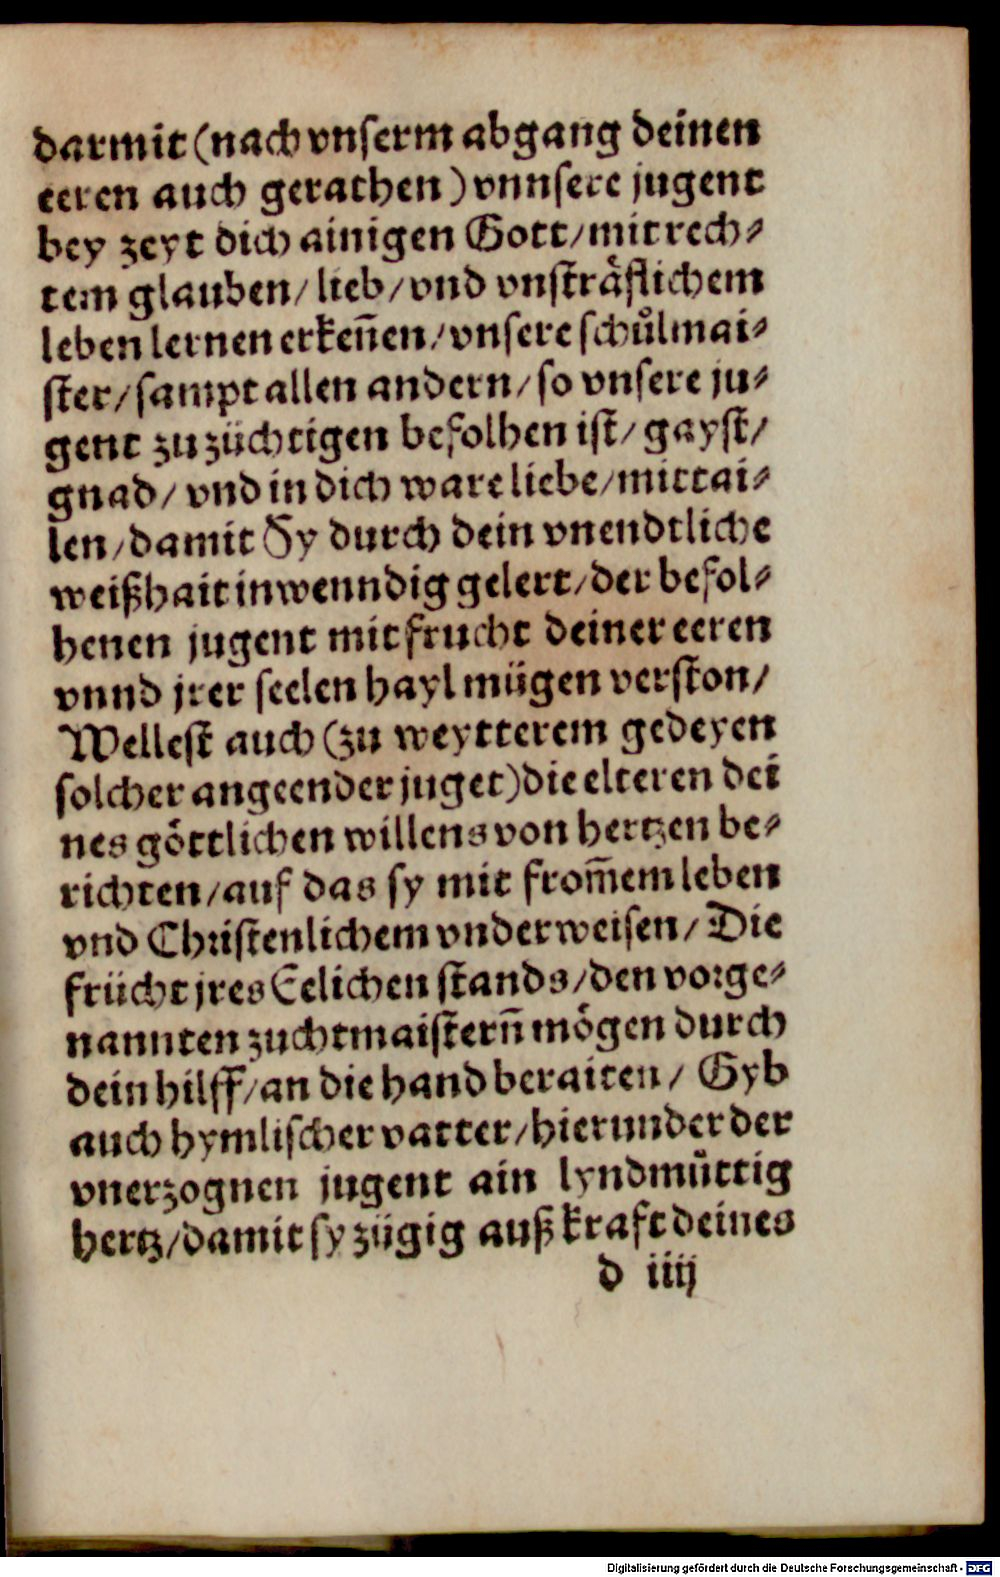 darmit (nach vnserm abgang deinen
eeren auch gerathen) vnnsere jugent
bey zeyt dich ainigen Gott/ mit rech⸗
tem glauben/ lieb/ vnd vnsträflichem
leben lernen erkeñen/ vnsere schůlmai⸗
ster/ sampt allen andern/ so vnsere ju⸗
gent zu züchtigen befolhen ist/ gayst/
gnad/ vnd in dich ware liebe/ mittai⸗
len/ damit Sy durch dein vnendtliche
weißhait inwenndig gelert/ der befol⸗
henen jugent mit frucht deiner eeren
vnnd jrer seelen hayl mügen verston/
Wellest auch (zu weytterem gedeyen
solcher angeender juget) die elteren dei
nes göttlichen willens von hertzen be⸗
richten/ auf das sy mit from̃em leben
vnd Christenlichem vnderweisen/ Die
frücht jres Eelichen stands/ den vorge⸗
nannten zuchtmaisterñ mögen durch
dein hilff/ an die hand beraiten/ Gyb
auch hymlischer vatter/ hierunder der
vnerzognen jugent ain lyndmůttig
hertz/ damit sy zügig auß kraft deines
d iiij
Digitalisierung gefördert durch die Deutsche Forschungsgemeinschaft - DFG